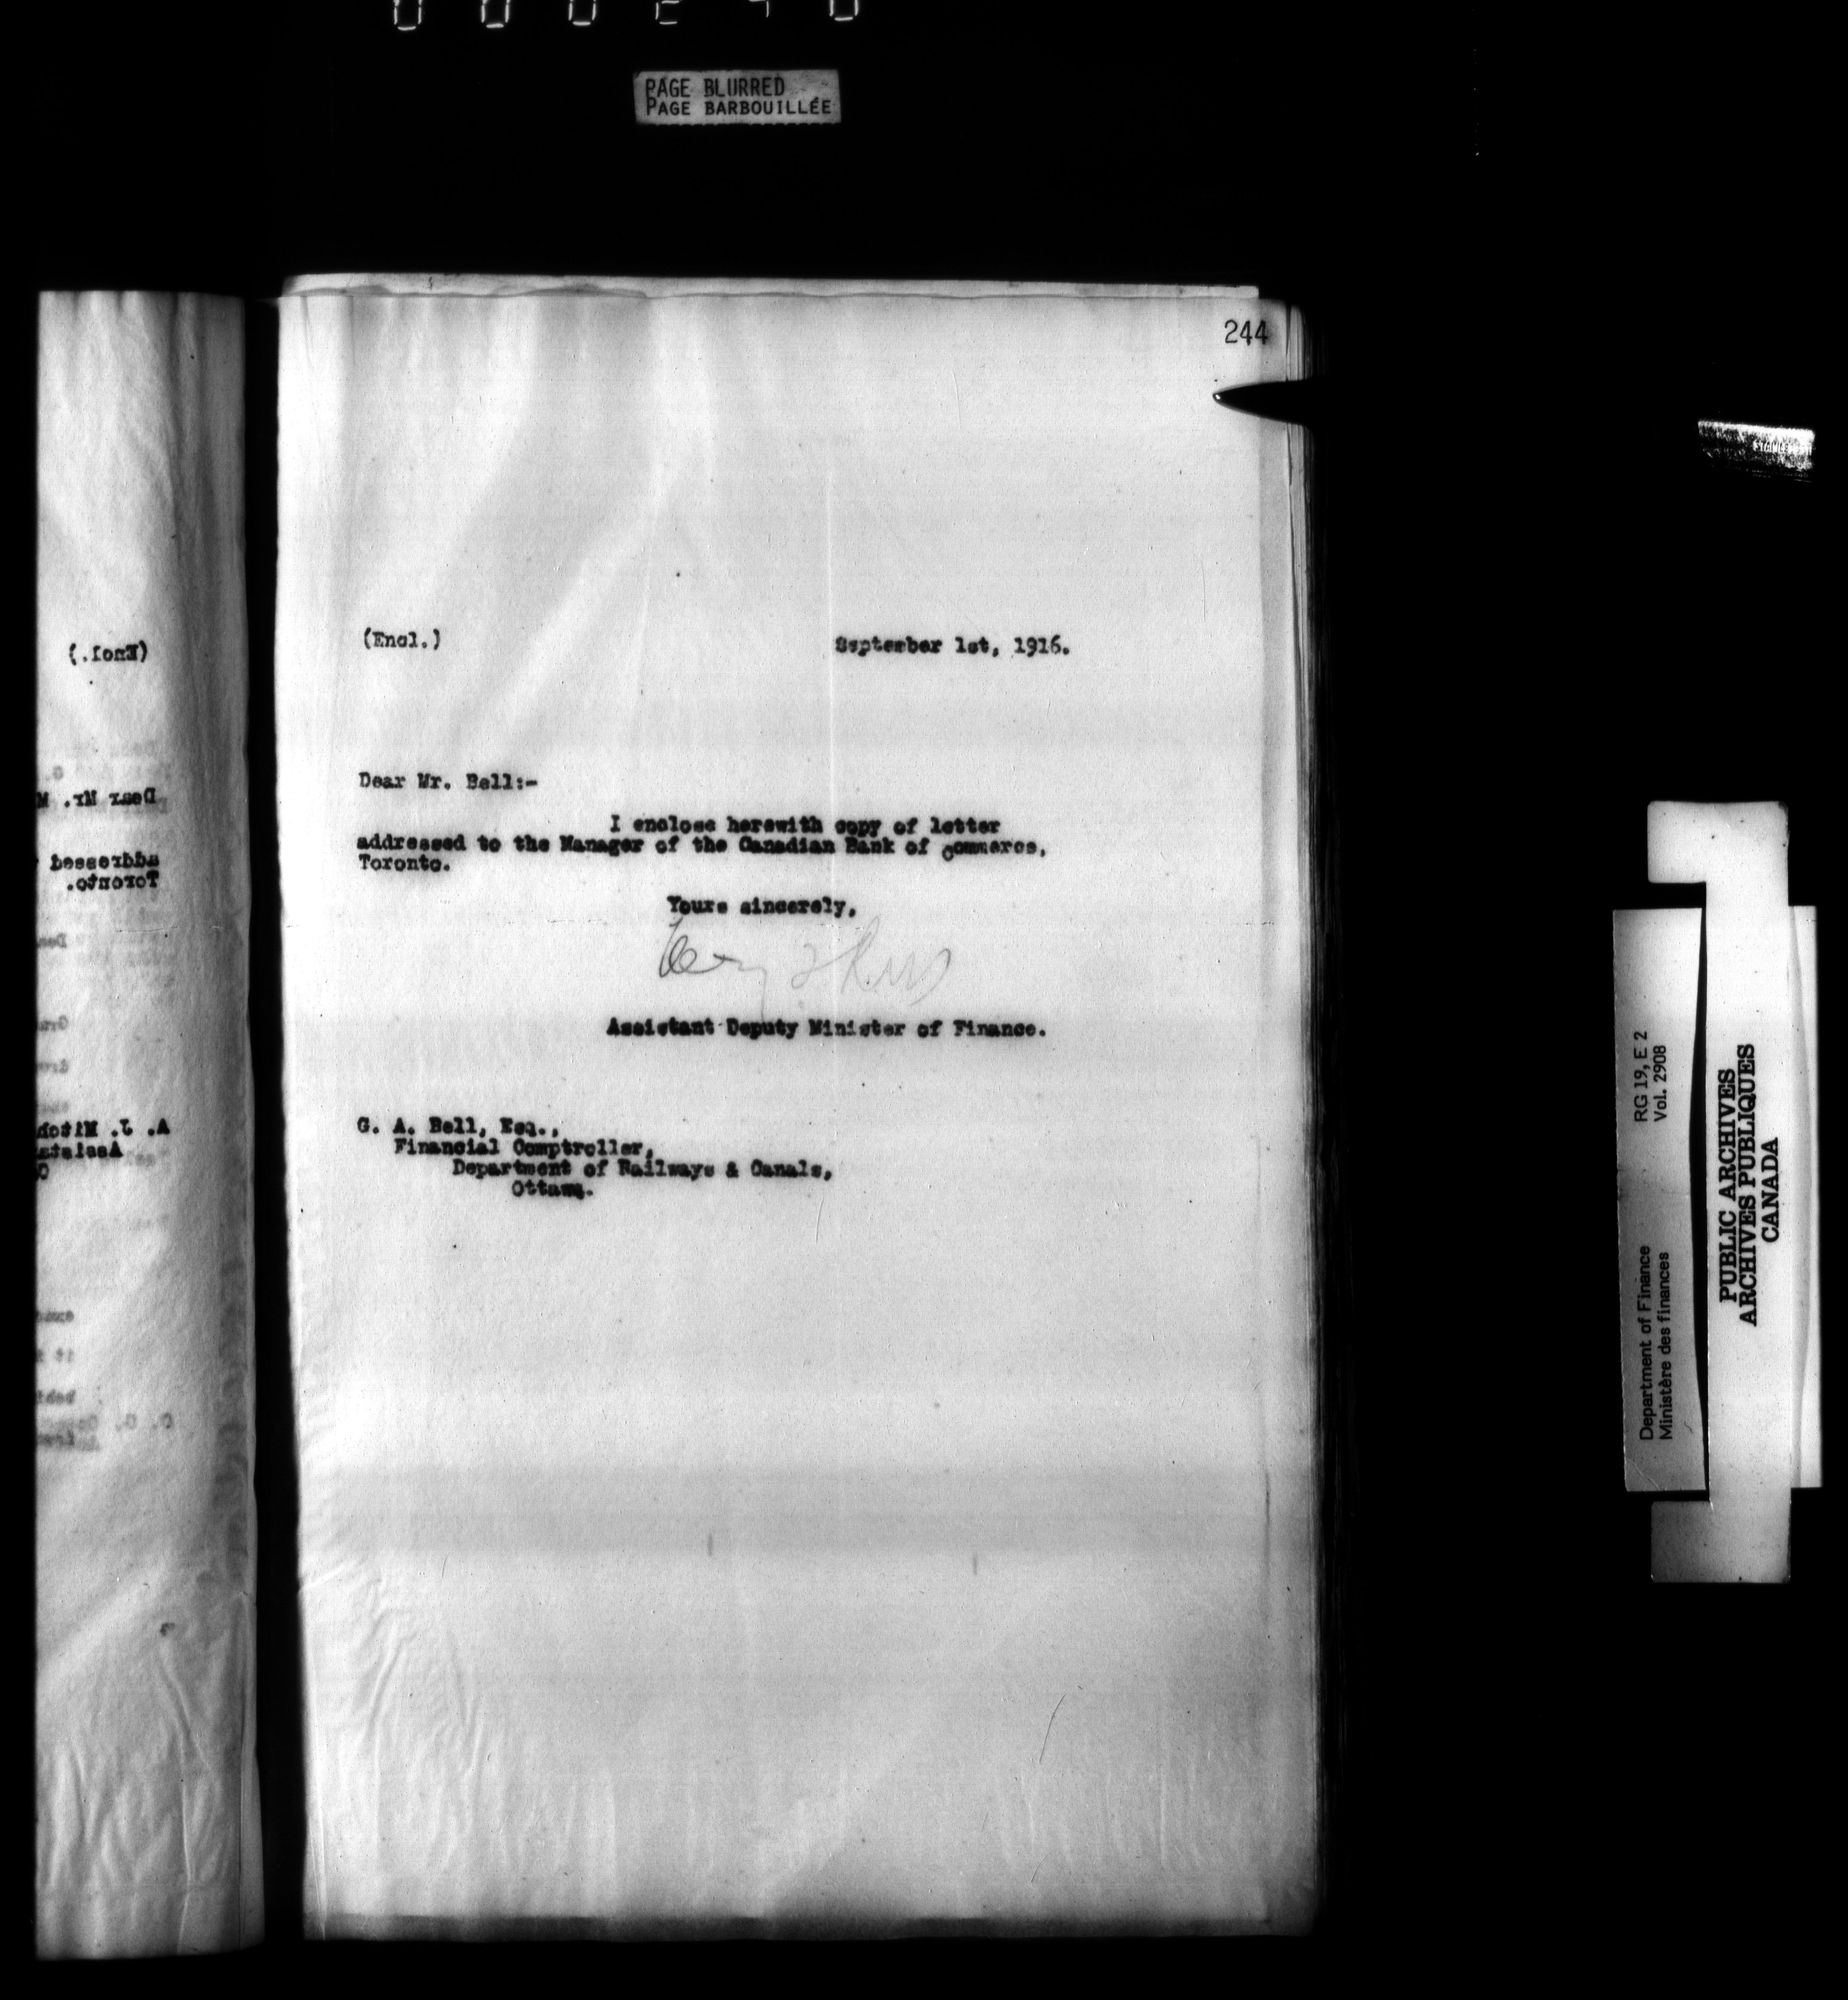 PAGE BLURRED
PAGE BARBOUILLÉE
244
(Encl.)
September 1st, 1916.
Dear Mr. Bell:-
I enclose herewith copy of letter
addressed to the Manager of the Canadian Bank of Commerce,
Toronto.
Yours sincerely,
Assistant Deputy Minister of Finance.
G. A. Bell, Esq.,
Financial Comptroller,
Department of Railways & Canals,
Ottawa.
(Encl.)
Dear Mr. M
addressed
Toronto.
Department of Finance
Ministère des finances
RG 19, E 2
Vol. 2908
PUBLIC ARCHIVES
ARCHIVES PUBLIQUES
CANADA